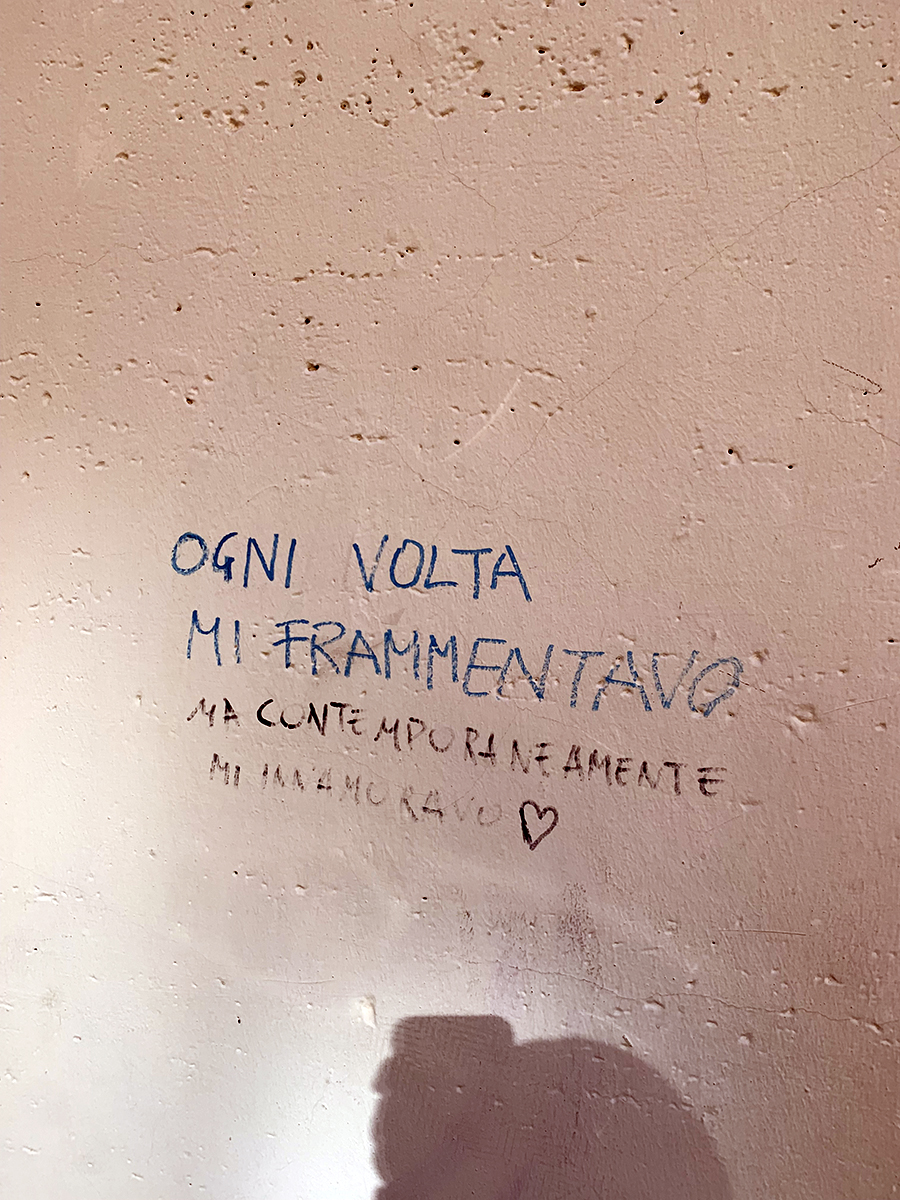 OGNI VOLTA
MI FRAMMENTAVO
MA CONTEMPORANEAMENTE
MI INNAMORAVO ♡